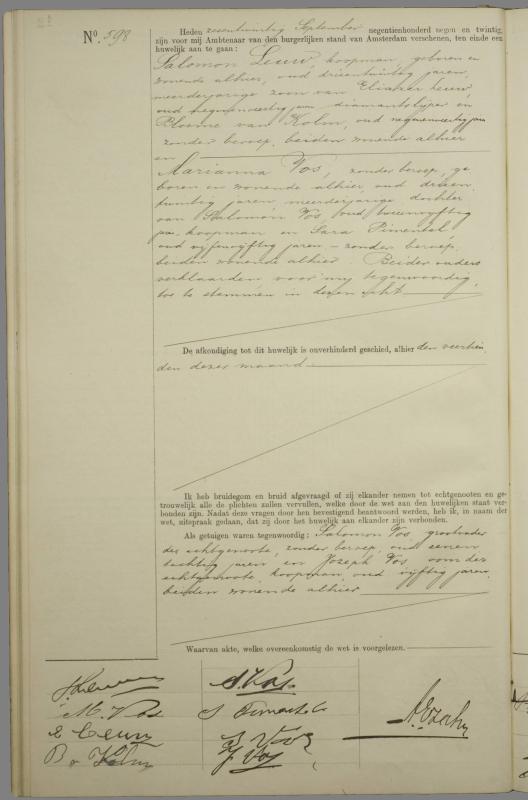 No. 598
Heden zesentwintig September negentienhonderd negen en twintig,
zijn voor mij Ambtenaar van den burgerlijken stand van Amsterdam verschenen, ten einde een
huwelijk aan te gaan:
Salomon Leuw, koopman, geboren en
wonende alhier, oud drieentwintig jaren,
meerderjarige zoon van Eliazer Leuw,
oud negenenveertig jaren diamantslijper en
Bloeme van Kolm, oud negenenveertig jaren
zonder beroep, beiden wonende alhier
en
Marianna Vos, zonder beroep, ge
boren en wonende alhier, oud drieen
twintig jaren, meerderjarige dochter
van Salomon Vos, oud tweeenvijftig
jaren, koopman en Sara Pimentel,
oud vijfenvijftig jaren - zonder beroep,
beiden wonende alhier. Beider ouders
verklaarden voor mij tegenwoordig,
toe te stemmen in dezen echt
De afkondiging tot dit huwelijk is onverhinderd geschied, alhier den veertien
den dezer maand
Ik heb bruidegom en bruid afgevraagd of zij elkander nemen tot echtgenooten en ge-
trouwelijk alle de plichten zullen vervullen, welke door de wet aan den huwelijken staat ver-
bonden zijn. Nadat deze vragen door hen bevestigend beantwoord werden, heb ik, in naam der
wet, uitspraak gedaan, dat zij door het huwelijk aan elkander zijn verbonden.
Als getuigen waren tegenwoordig: Salomon Vos, grootvader
der echtgenoote, zonder beroep, oud eenen
tachtig jaren en Jozeph Vos oom der
echtgenoote, koopman, oud vijftig jaren,
beiden wonende alhier
Waarvan akte, welke overeenkomstig de wet is voorgelezen.
S. Vos
M. Vos
S Pimentel
E Leuw
S Vos
B v Kolm
J Vos